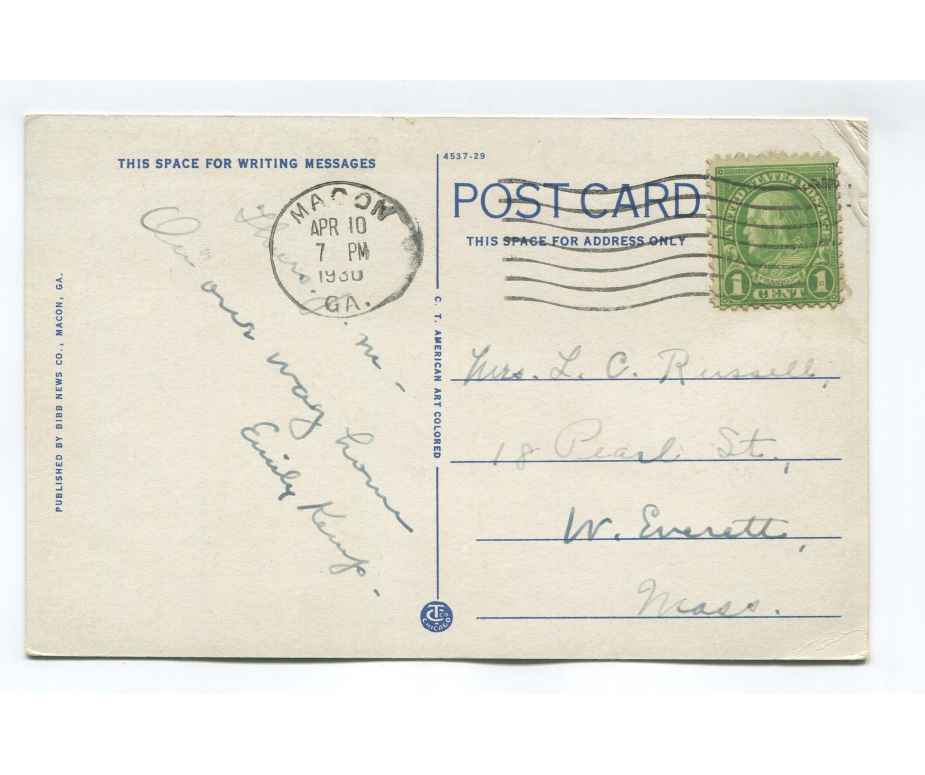 THIS SPACE FOR WRITING MESSAGES
4537-29
POST CARD
THIS SPACE FOR ADDRESS ONLY
MACON
APR 10
7 PM
1930
GA.
UNITED STATES POSTAGE
1 CENT 1
On our way home
Emily Kemp.
Mrs. L. C. Russell,
18 Pearl St.,
W. Everett,
Mass.
PUBLISHED BY BIBB NEWS CO., MACON, GA.
C. T. AMERICAN ART COLORED
CHICAGO